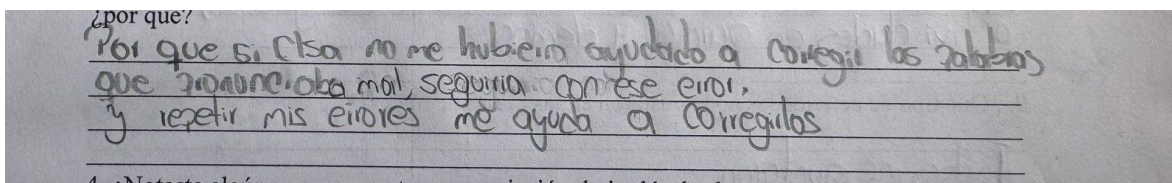 ¿por qué?
Por que si Elsa no me hubiera ayudado a corregir las palabras
que pronunciaba mal, seguiria con ese error.
y repetir mis errores me ayuda a corregirlos